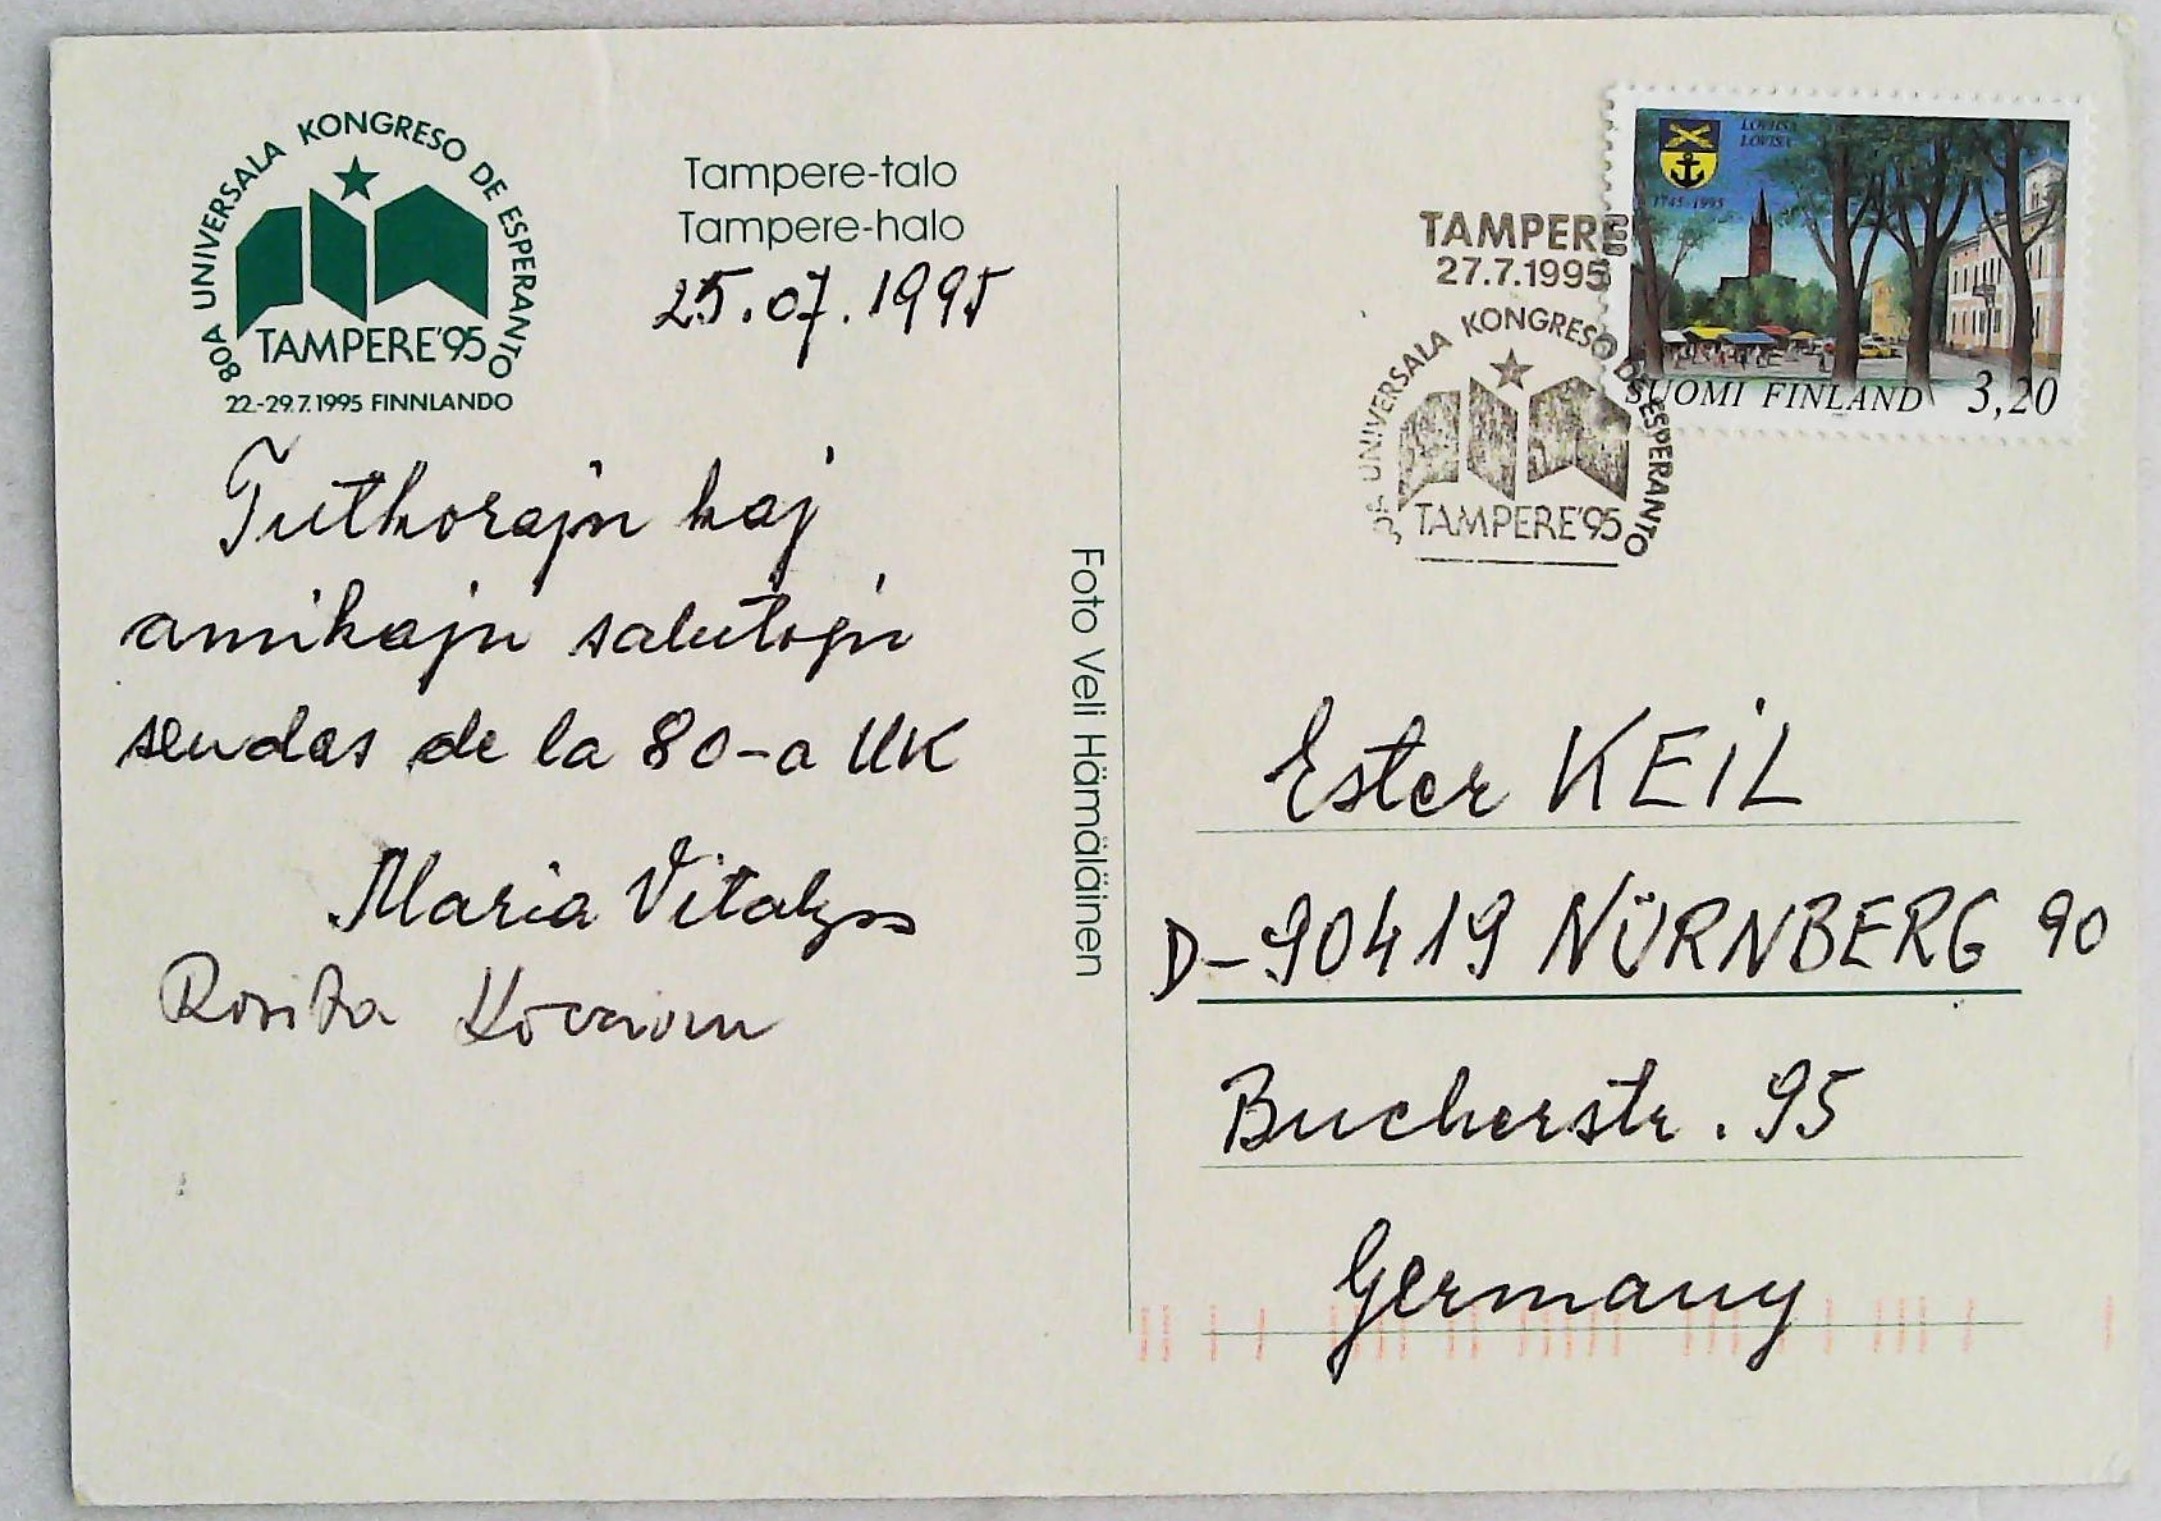 80A UNIVERSALA KONGRESO DE ESPERANTO
TAMPERE'95
22.-29.7.1995 FINNLANDO
Tampere-talo
Tampere-halo
25.07.1995
Tutkorajn kaj
amikajn salutojn
sendas de la 80-a UK
Maria
Rozita
Foto Veli Hämäläinen
TAMPERE
27.7.1995
80A UNIVERSALA KONGRESO DE ESPERANTO
TAMPERE'95
LOVIISA
LOVISA
1745-1995
SUOMI FINLAND 3,20
Ester KEIL
D-90419 NÜRNBERG 90
Bucherstr. 95
Germany